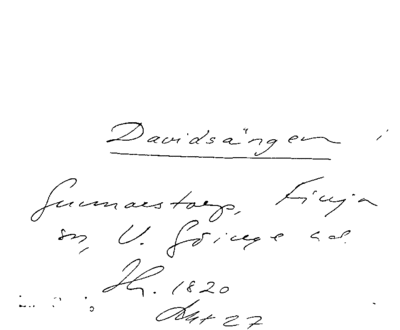 Davidsängen i
Gunnarstorp, Finja
sn, V. Göinge hd.
1820
27